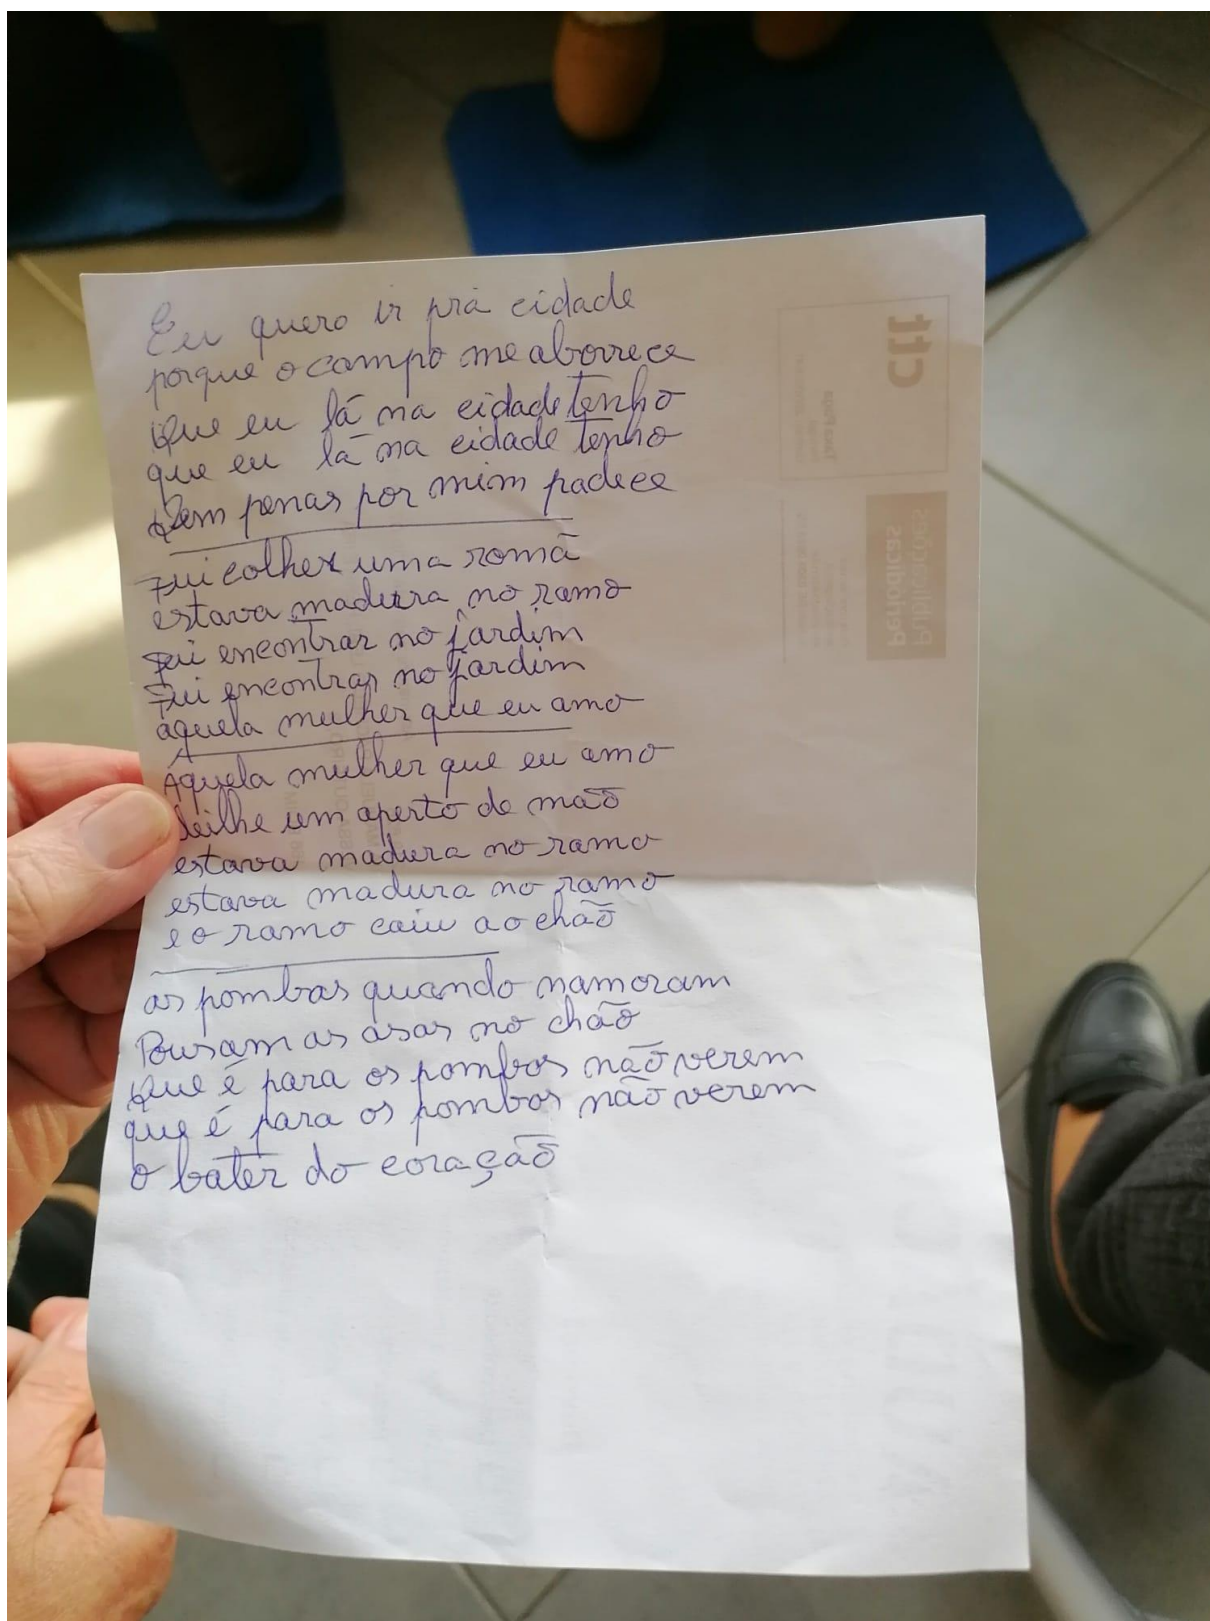 Eu quero ir prá cidade
porque o campo me aborrece
que eu lá na cidade tenho
que eu lá na cidade tenho
Quem penas por mim padece
Fui colher uma romã
estava madura no ramo
Fui encontrar no jardim
Fui encontrar no jardim
àquela mulher que eu amo
Áquela mulher que eu amo
deilhe um aperto de mão
estava madura no ramo
estava madura no ramo
e o ramo caiu ao chão
as pombas quando namoram
Pousam as asas no chão
que é para os pombos não verem
que é para os pombos não verem
o bater do coração
ctt
Taxa Paga
Publicações
Periódicas